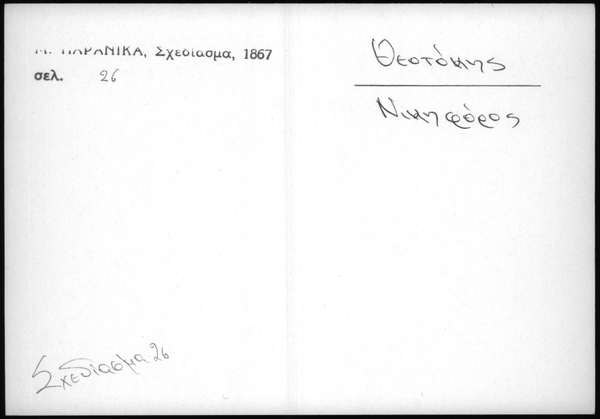 Μ. ΠΑΡΑΝΙΚΑ, Σχεδίασμα, 1867
σελ. 26
Θεοτόκης
Νικηφόρος
Σχεδίασμα 26